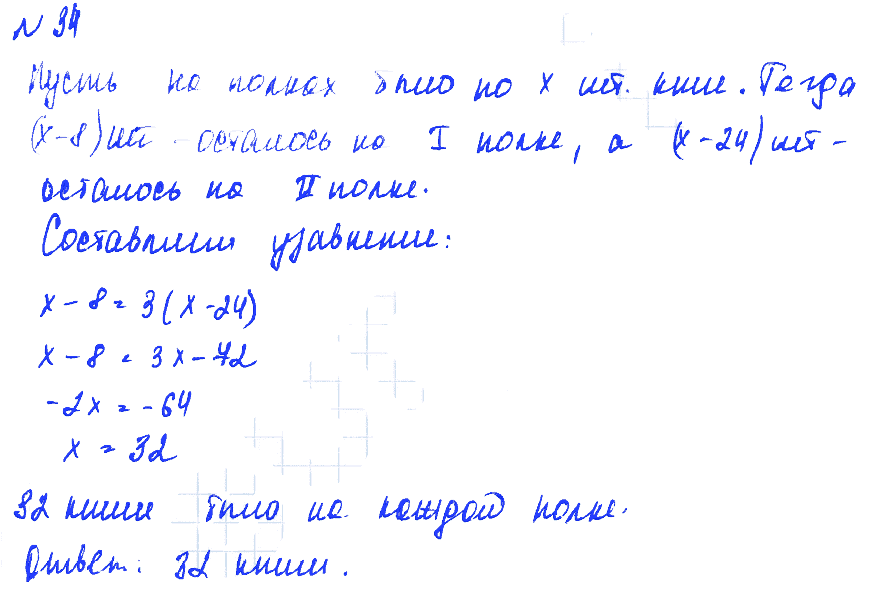 № 34
Пусть на полках было по x шт. книг. Тогда
(x-8) шт - осталось на I полке, а (x-24) шт -
осталось на II полке.
Составим уравнение:
x - 8 = 3(x-24)
x - 8 = 3x - 72
-2x = -64
x = 32
32 книги было на каждой полке.
Ответ: 32 книги.